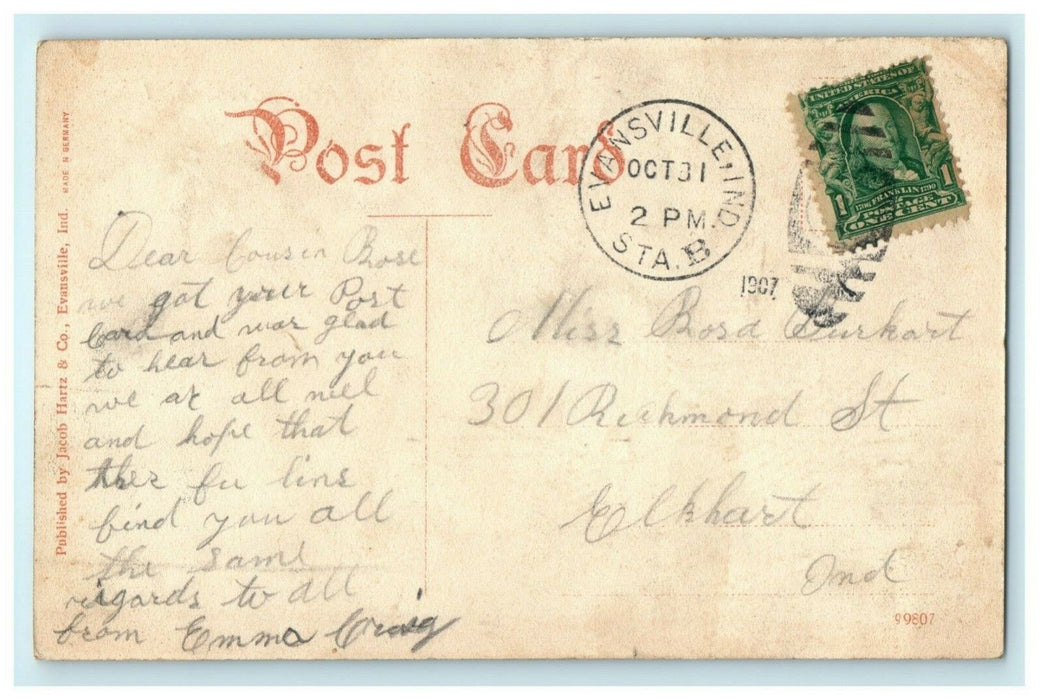 Post Card
EVANSVILLE, IND
OCT 31
2 PM.
STA. B
1907
UNITED STATES OF
AMERICA
1706 FRANKLIN 1790
1 POSTAGE 1
ONE CENT
Published by Jacob Hartz & Co., Evansville, Ind. MADE IN GERMANY
Dear Cousin Rose
we got your Post
Card and was glad
to hear from you
we ar all well
and hope that
thes fu line
find you all
the same
regards to all
from Emma Craig
Miss Rosa Burkart
301 Richmond St
Elkhart
Ind
99807